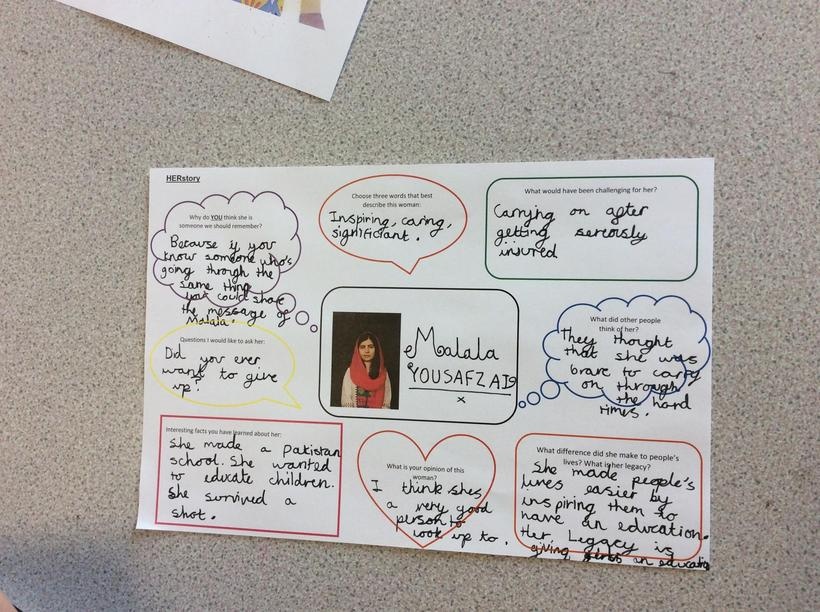 HERstory
Why do YOU think she is
someone we should remember?
Because if you
know someone who's
going through the
same thing
you could share
the message of
Malala.
Choose three words that best
describe this woman:
Inspiring, caring,
significant.
What would have been challenging for her?
Carrying on after
getting seriously
injured
Questions I would like to ask her:
Did you ever
want to give
up?
Malala
YOUSAFZAI
x
What did other people
think of her?
They thought
that she was
brave to carry
on through
the hard
times.
Interesting facts you have learned about her:
She made a pakistan
school. She wanted
to educate children.
She survived a
shot.
What is your opinion of this
woman?
I think shes
a very good
person to
look up to.
What difference did she make to people's
lives? What is her legacy?
She made people's
lives easier by
inspiring them to
have an education.
Her Legacy is
giving girls an education